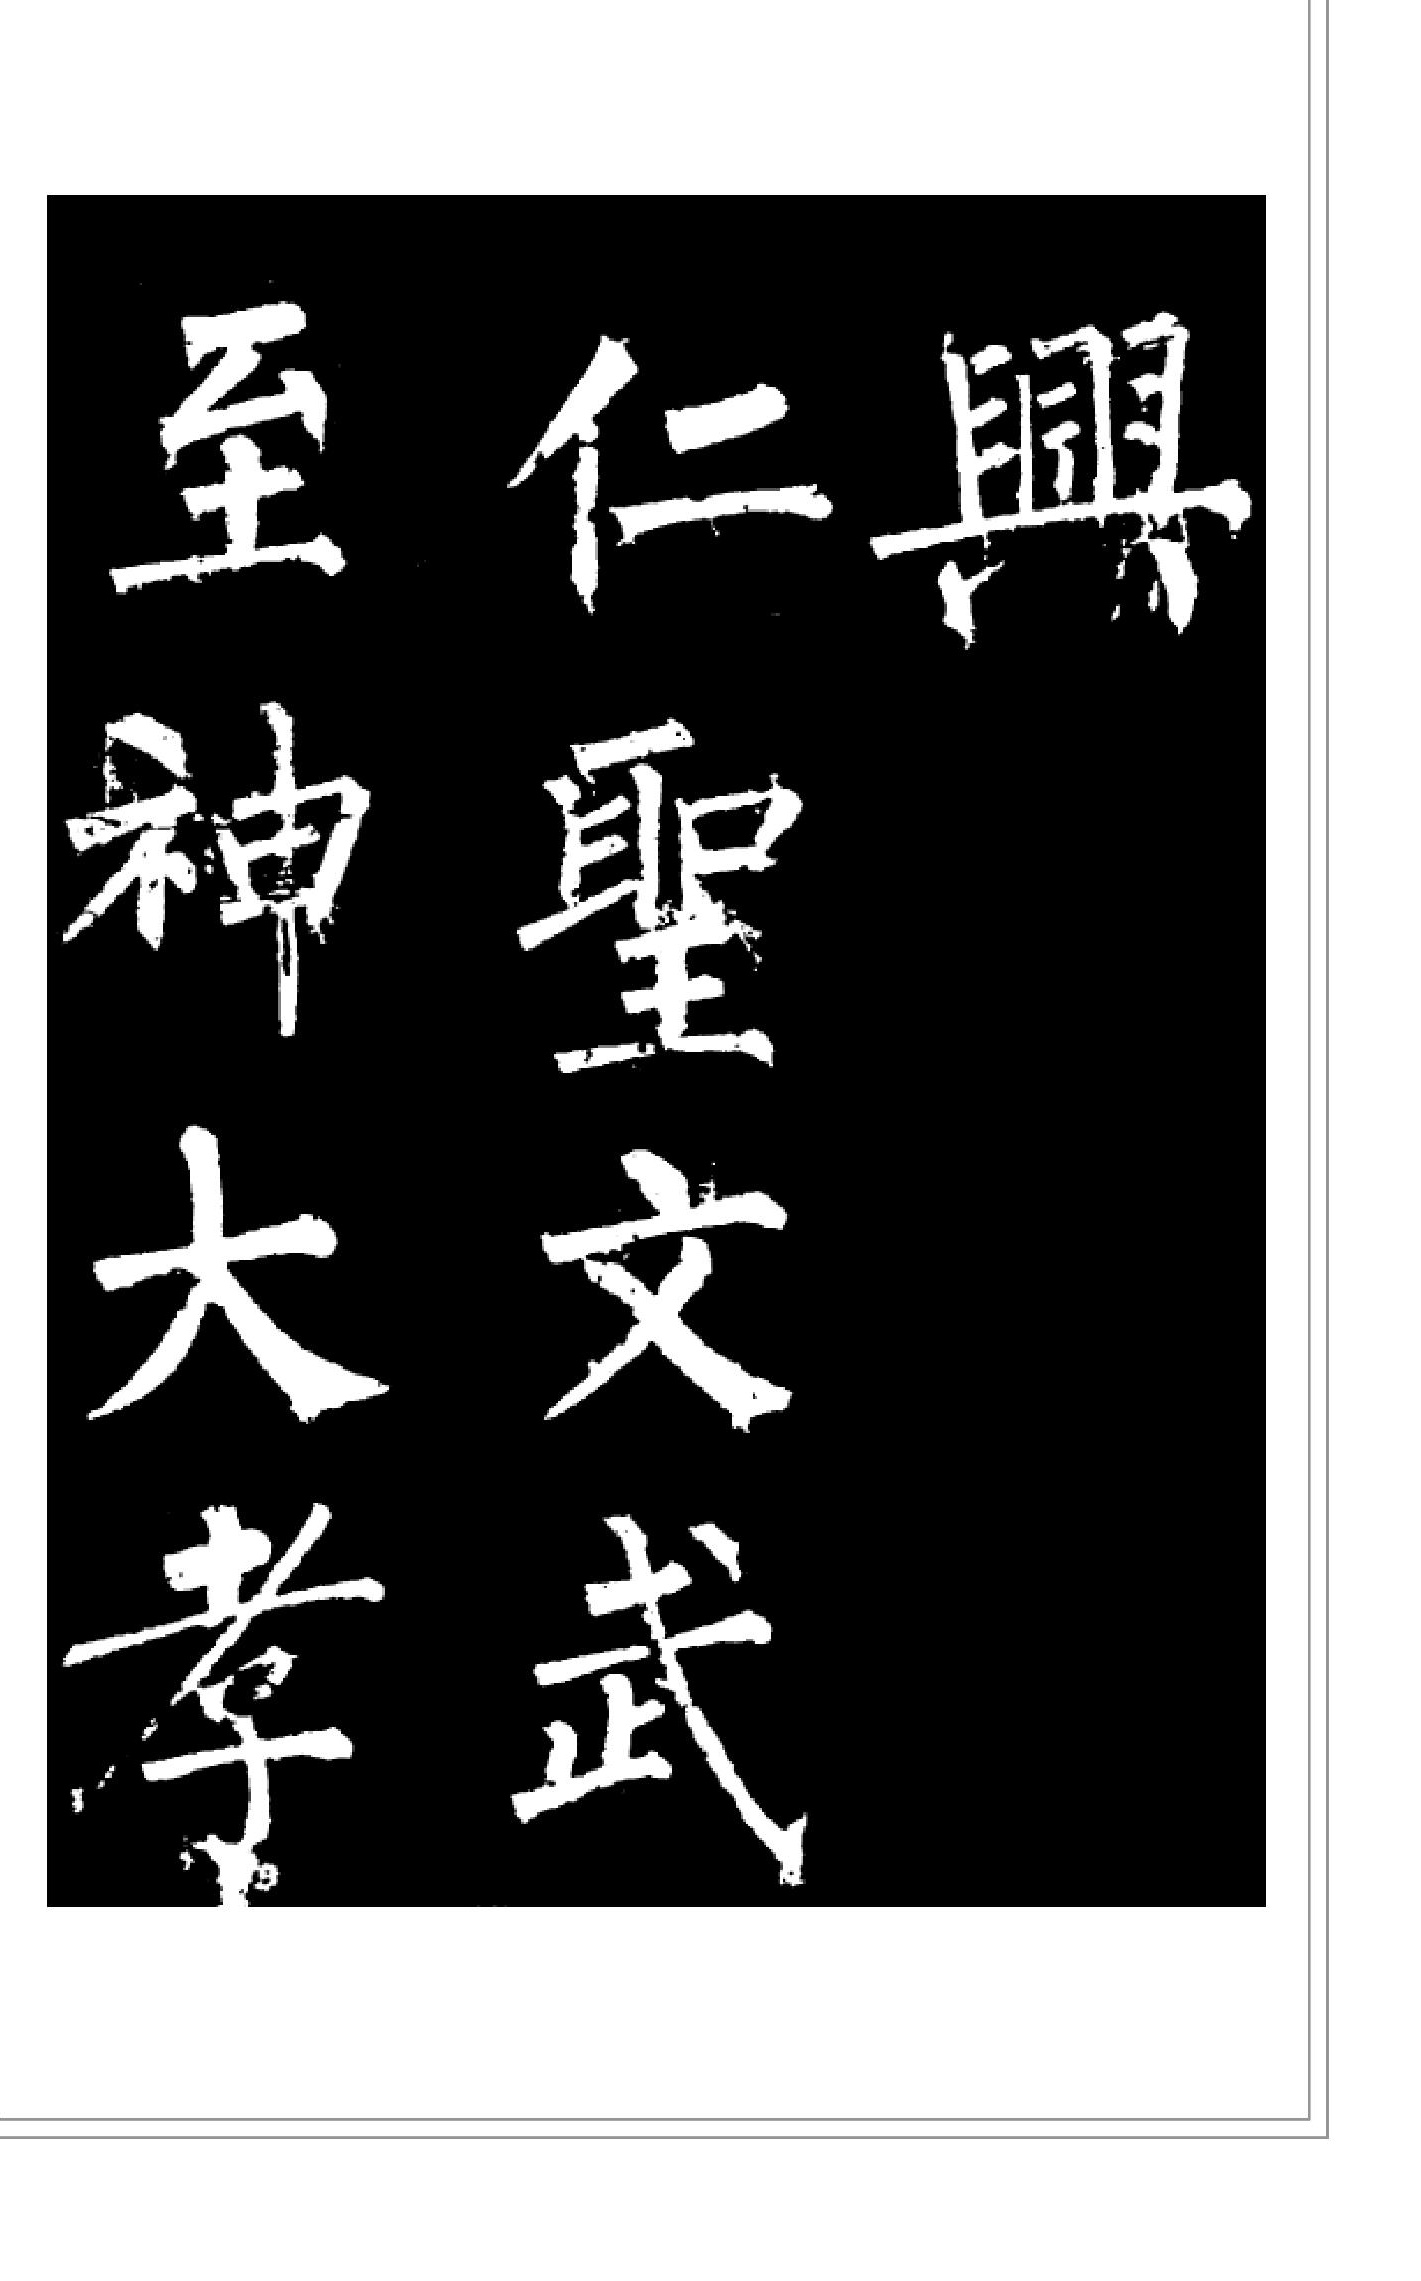 興
仁聖文武
至神大孝